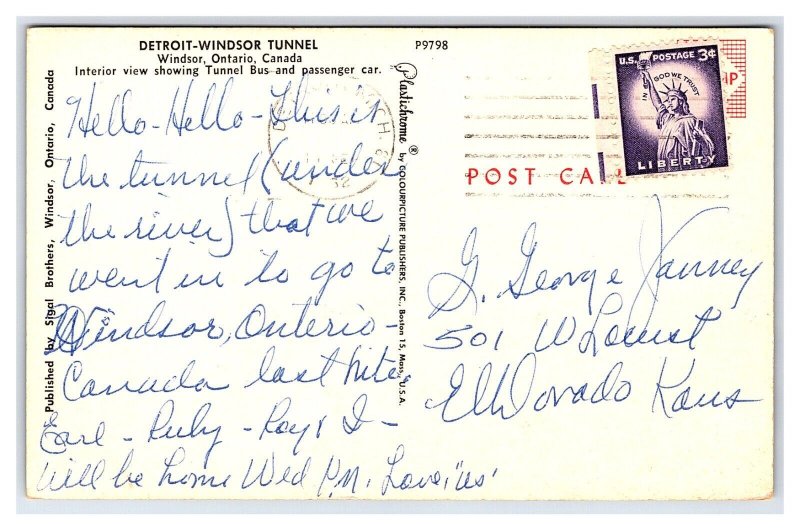 DETROIT-WINDSOR TUNNEL
Windsor, Ontario, Canada
Interior view showing Tunnel Bus and passenger car.
P9798
Published by Sigal Brothers, Windsor, Ontario, Canada
Hello-Hello-This is
the tunnel (under
the river) that we
went in to go to
Windsor, Onterio-
Canada last nite,
Earl - Ruby - Roy & I -
will be home Wed P.M. Love "us"
Plastichrome ® by COLOURPICTURE PUBLISHERS, INC., Boston 15, Mass., U.S.A.
U.S. POSTAGE 3¢
IN GOD WE TRUST
LIBERTY
IP
POST CA
G. George Yanney
501 W Locust
ElDorado Kans